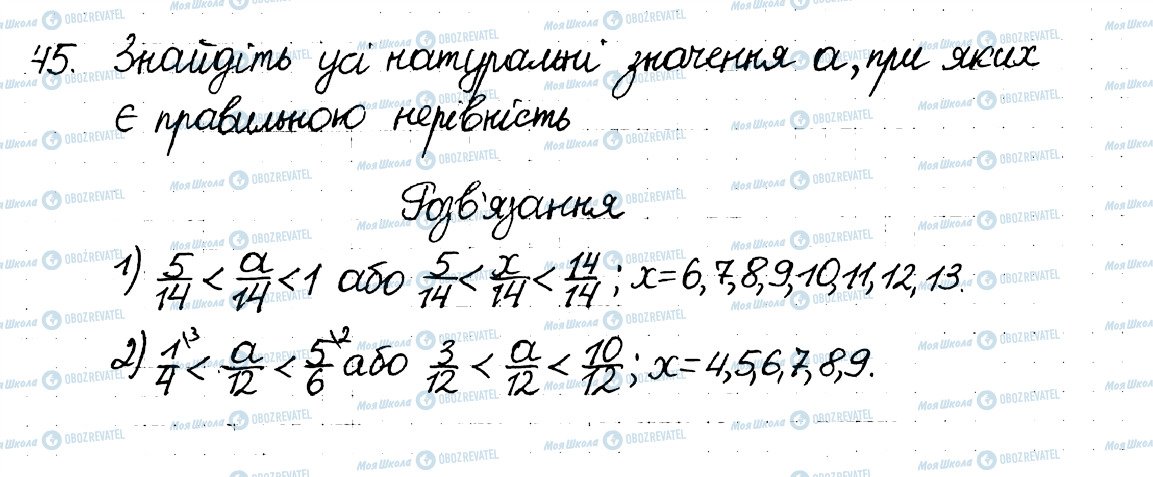 45. Знайдіть усі натуральні значення а, при яких
є правильною нерівність
Розв'язання
1) 5/14 < a/14 < 1 або 5/14 < x/14 < 14/14; x = 6, 7, 8, 9, 10, 11, 12, 13.
2) 1\3/4 < a/12 < 5\2/6 або 3/12 < a/12 < 10/12; x = 4, 5, 6, 7, 8, 9.
МояШкола OBOZREVATEL